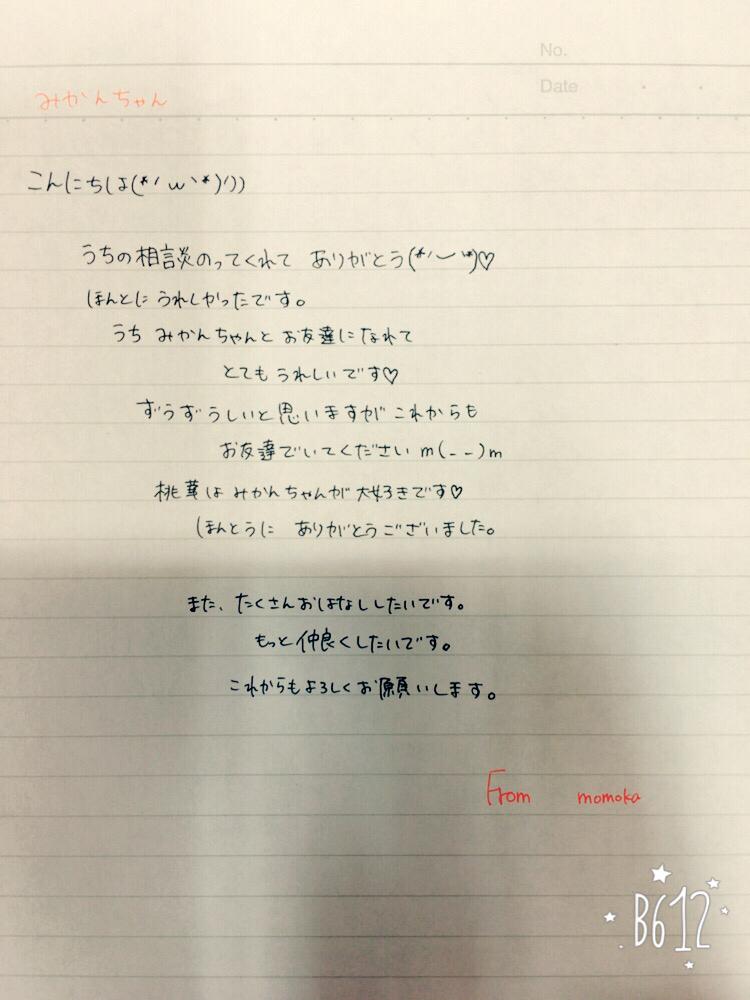 No.
Date
みかんちゃん
こんにちは(*´ω`*)ﾉ))
うちの相談のってくれて ありがとう(*´︶`*)♡
ほんとに うれしかったです。
うち みかんちゃんと お友達になれて
とても うれしいです♡
ずうずうしいと思いますが これからも
お友達でいてください m(- -)m
桃華は みかんちゃんが 大好きです♡
ほんとうに ありがとうございました。
また、たくさんおはなししたいです。
もっと仲良くしたいです。
これからもよろしくお願いします。
From momoka
B612